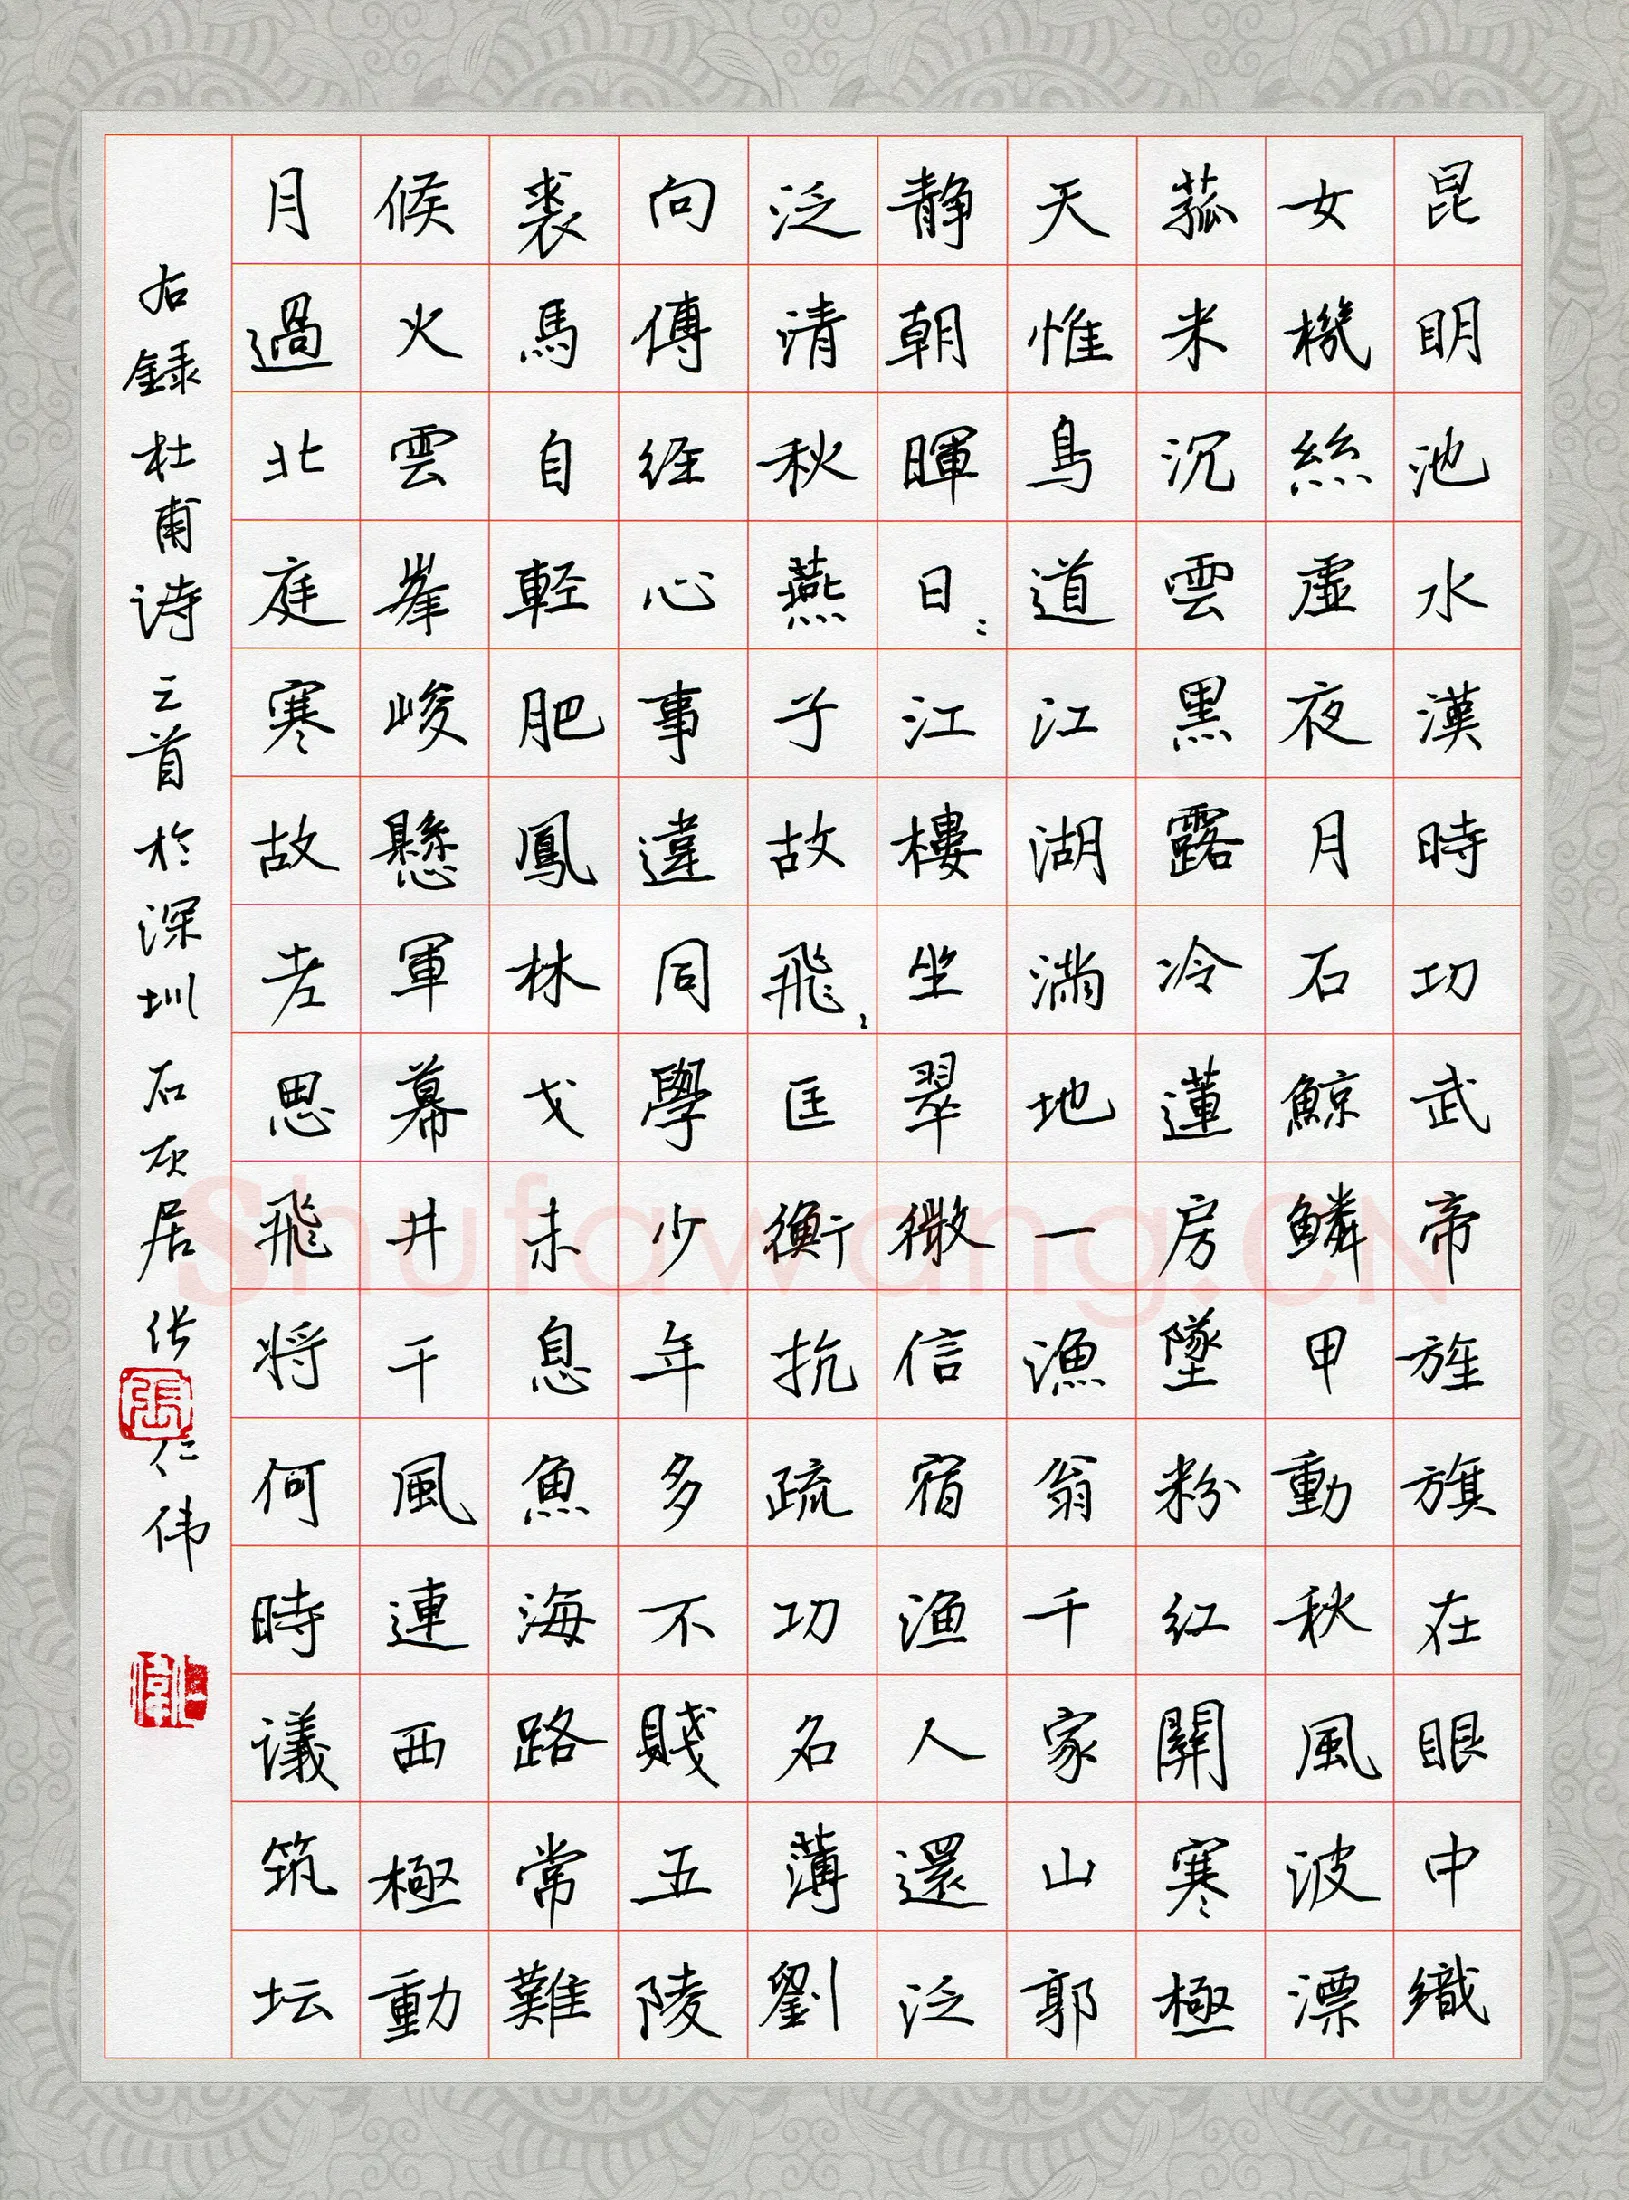 昆明池水漢時功武帝旌旗在眼中織
女機絲虛夜月石鯨鱗甲動秋風波漂
菰米沉雲黑露冷蓮房墜粉紅關寒極
天惟鳥道江湖滿地一漁翁千家山郭
静朝暉日〻江樓坐翠微信宿漁人還泛
泛清秋燕子故飛〻匡衡抗疏功名薄劉
向傳經心事違同學少年多不賤五陵
裘馬自輕肥鳳林戈未息魚海路常難
候火雲峯峻懸軍幕井千風連西極動
月過北庭寒故老思飛将何時議筑坛
右録杜甫诗三首於深圳石灰居张仁伟
張
Shufawang.CN